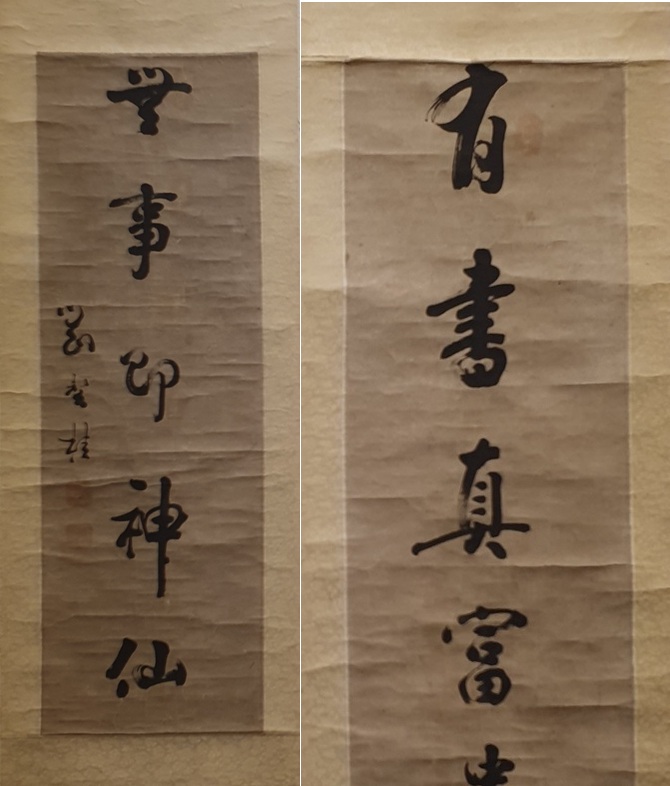 有書真富
無事即神仙